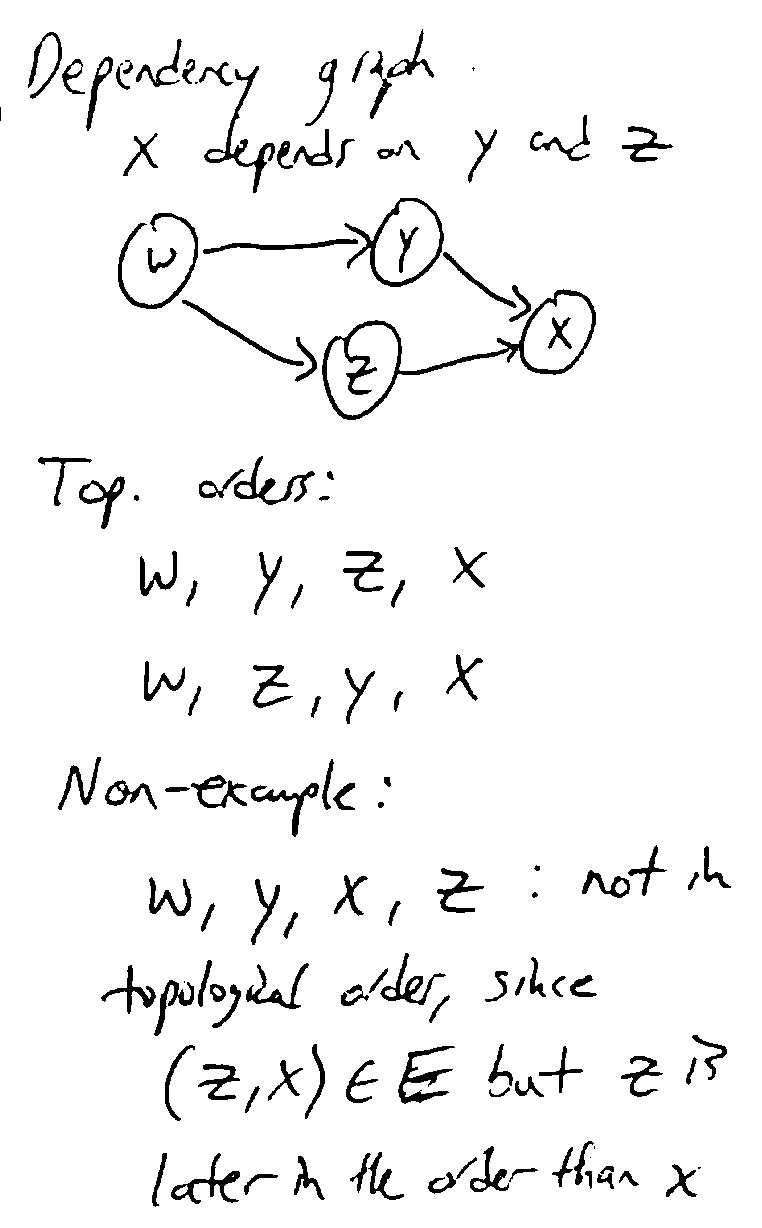 Dependency graph.
X depends on y and z
W
Y
Z
X
Top. orders:
W, Y, Z, X
W, Z, Y, X
Non-example:
W, Y, X, Z : not in
topological order, since
(Z, X) ∈ E but z is
later in the order than x